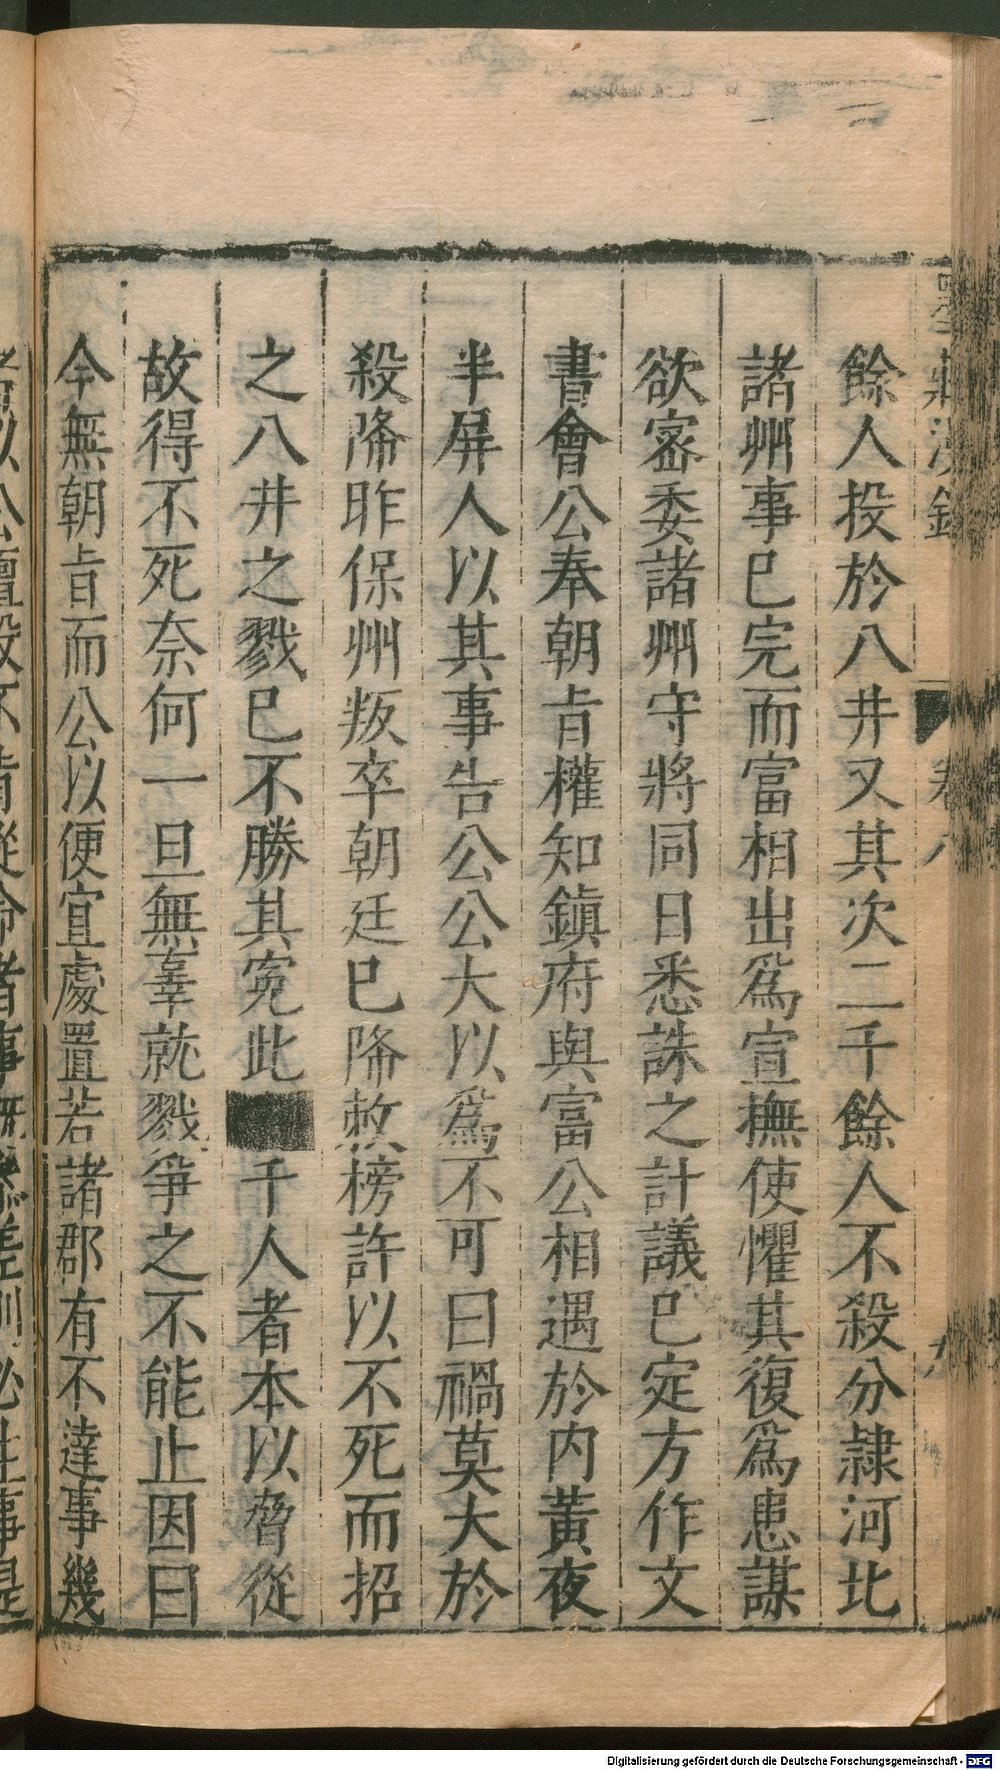 餘人投於八井又其次二千餘人不殺分隸河北
諸州事已完而富相出爲宣撫使懼其復爲患謀
欲密委諸州守將同日悉誅之計議已定方作文
書會公奉朝旨權知鎮府與富公相遇於内黃夜
半屏人以其事告公公大以爲不可曰禍莫大於
殺降昨保州叛卒朝廷已降敕榜許以不死而招
之八井之戮已不勝其寃此千人者本以脅從
故得不死奈何一旦無辜就戮爭之不能止因曰
今無朝旨而公以便宜處置若諸郡有不達事幾
墨莊漫錄
卷八
Digitalisierung gefördert durch die Deutsche Forschungsgemeinschaft - DFG